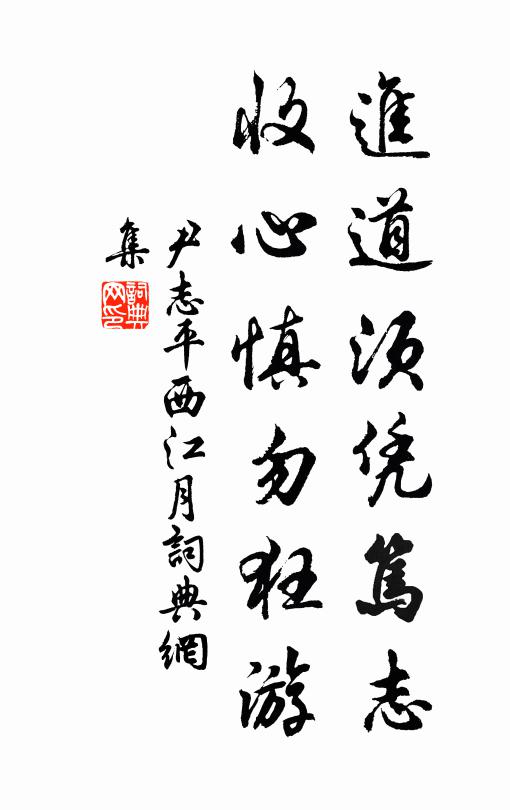 進道须凭篤志
收心慎勿狂游
尹志平西江月詞典網
集
詞典
网印